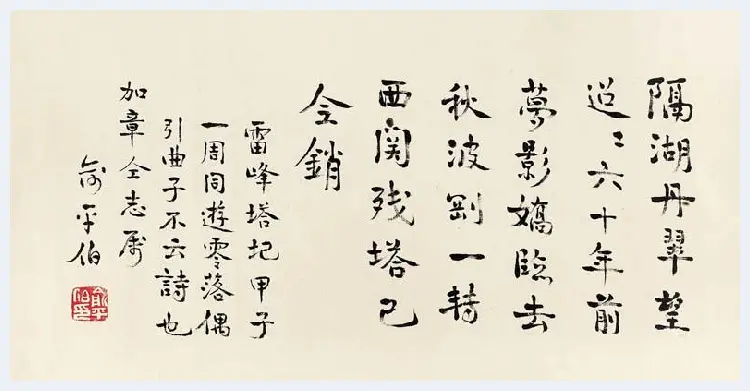 隔湖丹翠望
迢〻六十年前
夢影嬌臨去
秋波剛一轉
西関残塔已
全銷
雷峰塔圮甲子
一周同遊零落偶
引曲子不云詩也
加章仝志属
俞平伯